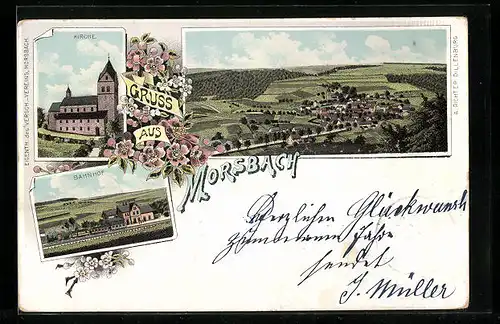 KIRCHE
EIGENTH. des VERSCH.-VEREINS, MORSBACH.
GRUSS
AUS
MORSBACH
A. RICHTER DILLENBURG
BAHNHOF
Herzlichen Glückwunsch
Jahre
sendet
J. Müller